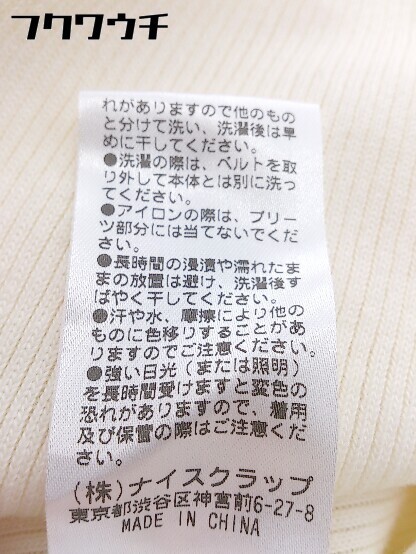 フクワウチ
れがありますので他のもの
と分けて洗い、洗濯後は早
めに干してください。
●洗濯の際は、ベルトを取
り外して本体とは別に洗っ
てください。
●アイロンの際は、プリー
ツ部分には当てないでくだ
さい。
●長時間の浸漬や濡れたま
まの放置は避け、洗濯後す
ばやく干してください。
●汗や水、摩擦により他の
ものに色移りすることがあ
りますのでご注意ください。
●強い日光(または照明)
を長時間受けますと変色の
恐れがありますので、着用
及び保管の際はご注意くだ
さい。
(株)ナイスクラップ
東京都渋谷区神宮前6-27-8
MADE IN CHINA